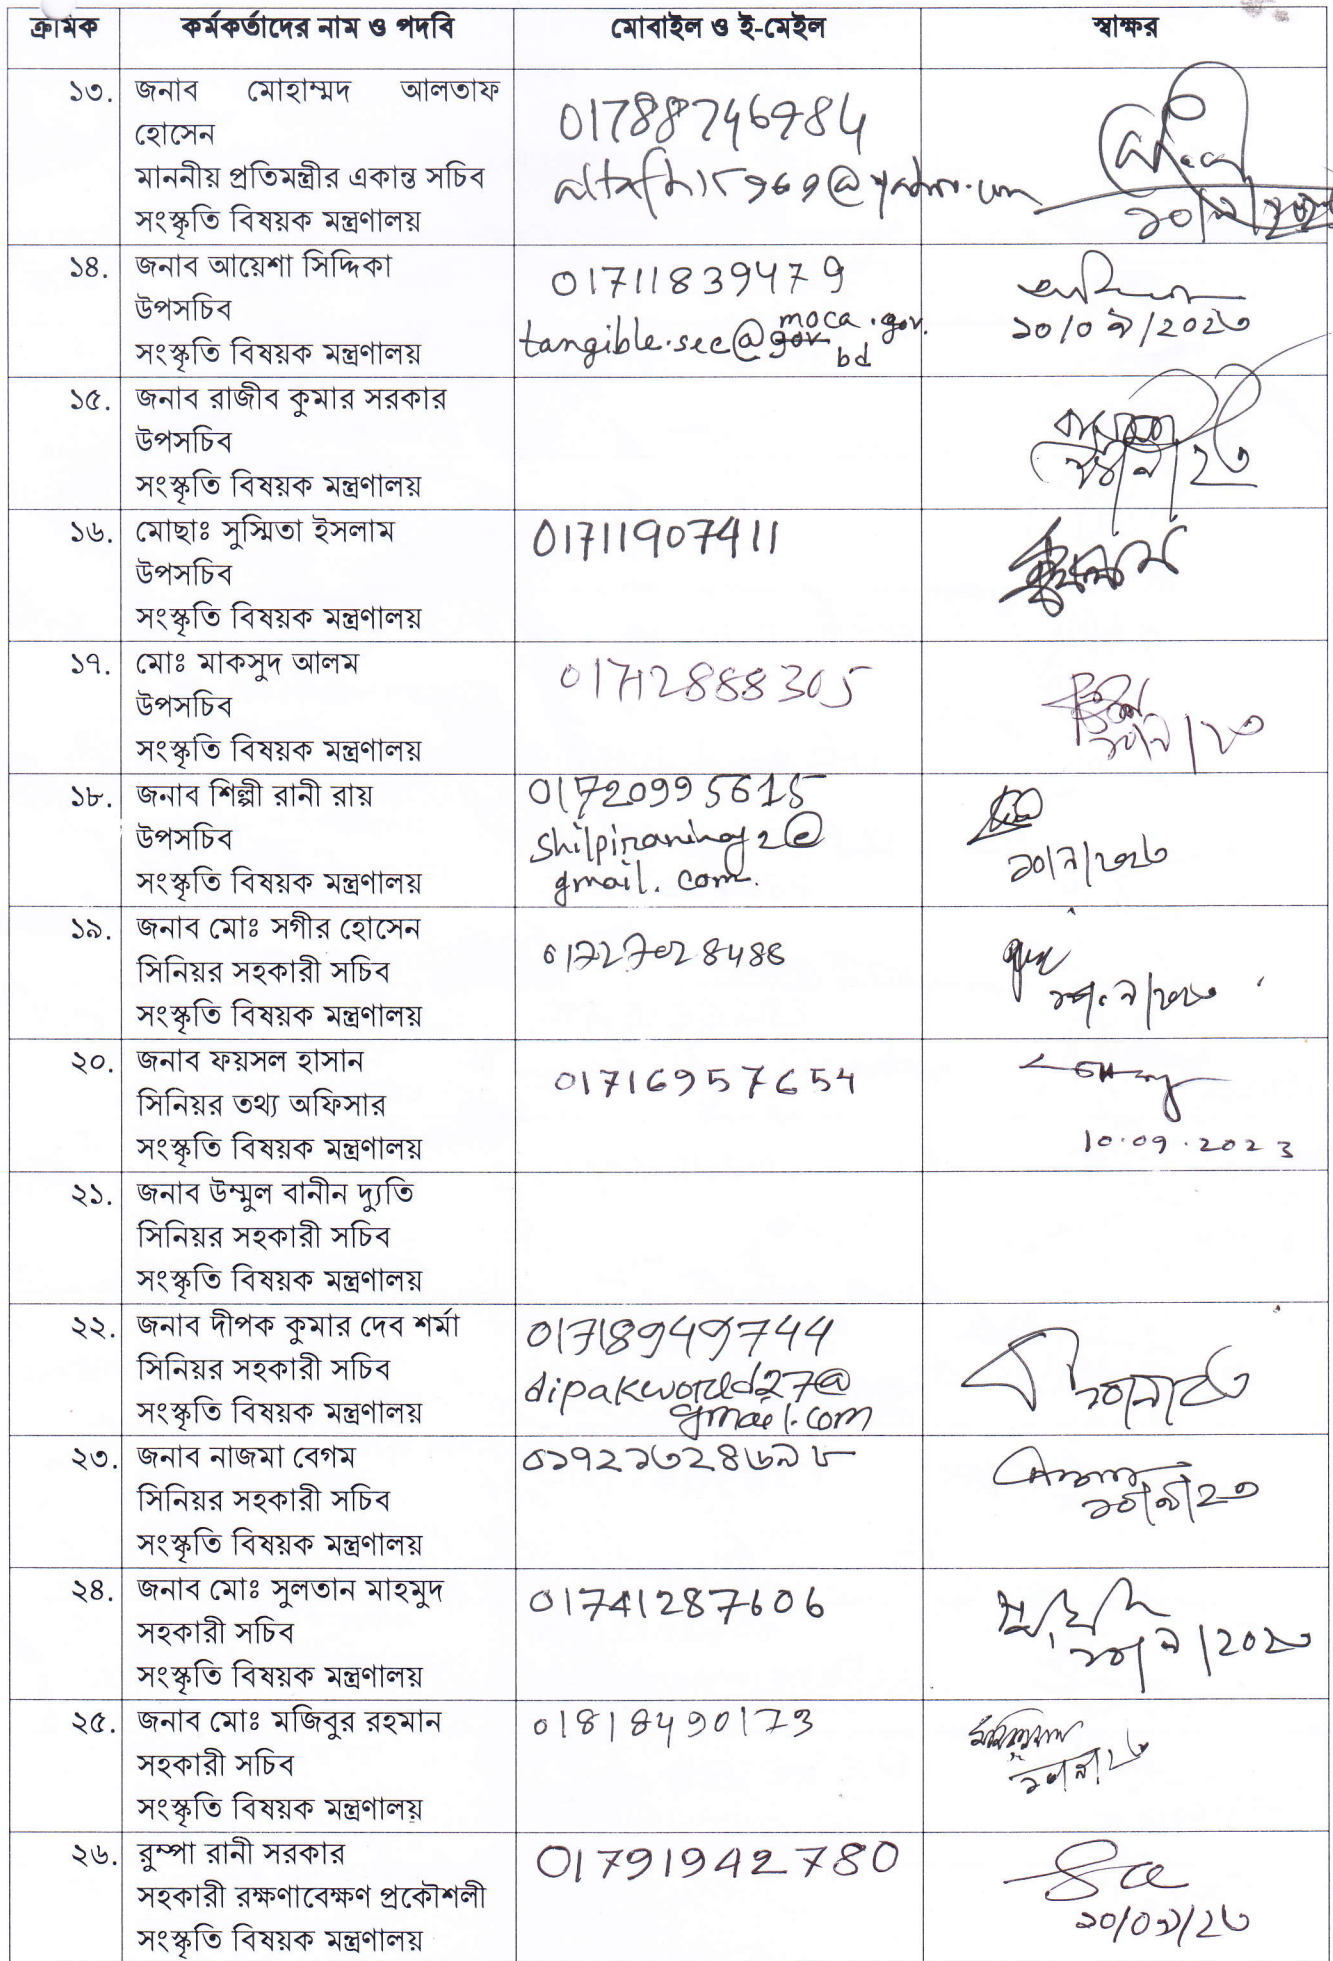 ক্রমিক কর্মকর্তাদের নাম ও পদবি মোবাইল ও ই-মেইল স্বাক্ষর
১৩. জনাব মোহাম্মদ আলতাফ
হোসেন
মাননীয় প্রতিমন্ত্রীর একান্ত সচিব
সংস্কৃতি বিষয়ক মন্ত্রণালয়
01788746984
১৪. জনাব আয়েশা সিদ্দিকা
উপসচিব
সংস্কৃতি বিষয়ক মন্ত্রণালয়
01711839479
tangible.sec@moca.gov.
bd
১০/০৯/২০২৩
১৫. জনাব রাজীব কুমার সরকার
উপসচিব
সংস্কৃতি বিষয়ক মন্ত্রণালয়
১৬. মোছাঃ সুস্মিতা ইসলাম
উপসচিব
সংস্কৃতি বিষয়ক মন্ত্রণালয়
01711907411
১৭. মোঃ মাকসুদ আলম
উপসচিব
সংস্কৃতি বিষয়ক মন্ত্রণালয়
01712888305
১৮. জনাব শিল্পী রানী রায়
উপসচিব
সংস্কৃতি বিষয়ক মন্ত্রণালয়
01720995615
gmail.com.
১০/৯/২০২৩
১৯. জনাব মোঃ সগীর হোসেন
সিনিয়র সহকারী সচিব
সংস্কৃতি বিষয়ক মন্ত্রণালয়
01727028488
২০. জনাব ফয়সল হাসান
সিনিয়র তথ্য অফিসার
সংস্কৃতি বিষয়ক মন্ত্রণালয়
01716957654
10.09.2023
২১. জনাব উম্মুল বানীন দ্যুতি
সিনিয়র সহকারী সচিব
সংস্কৃতি বিষয়ক মন্ত্রণালয়
২২. জনাব দীপক কুমার দেব শর্মা
সিনিয়র সহকারী সচিব
সংস্কৃতি বিষয়ক মন্ত্রণালয়
01718949744
dipakworld27@
gmail.com
২৩. জনাব নাজমা বেগম
সিনিয়র সহকারী সচিব
সংস্কৃতি বিষয়ক মন্ত্রণালয়
১০/৯/২৩
২৪. জনাব মোঃ সুলতান মাহমুদ
সহকারী সচিব
সংস্কৃতি বিষয়ক মন্ত্রণালয়
01741287606
১০/৯/২০২৩
২৫. জনাব মোঃ মজিবুর রহমান
সহকারী সচিব
সংস্কৃতি বিষয়ক মন্ত্রণালয়
01818490173
২৬. রুম্পা রানী সরকার
সহকারী রক্ষণাবেক্ষণ প্রকৌশলী
সংস্কৃতি বিষয়ক মন্ত্রণালয়
01791942780
১০/০৯/২৩